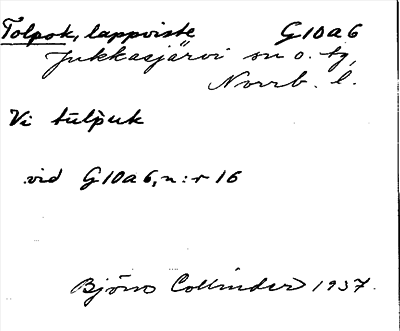 Tolpok, lappviste G10a6
Jukkasjärvi sn o. tg,
Norrb. l.
Vi tulpuk
vid G10a6, n:r 16
Björn Collinder 1937.